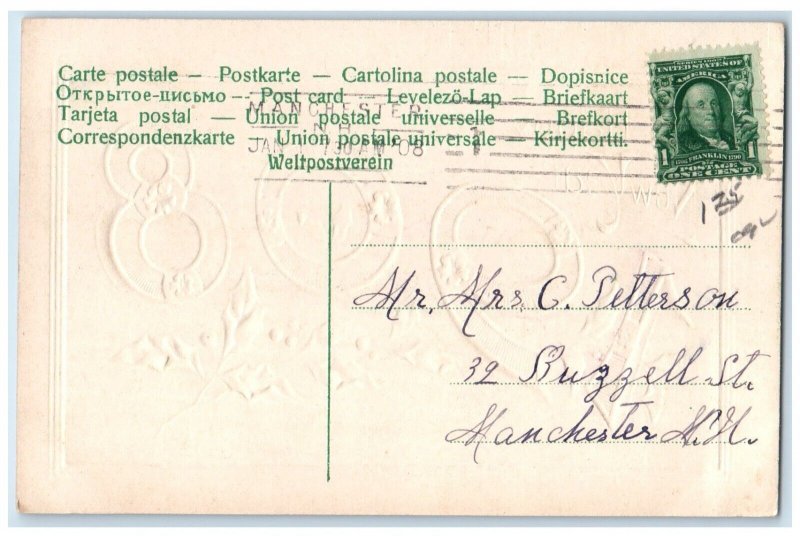 Carte postale — Postkarte — Cartolina postale — Dopisnice
Открытое-письмо — Post card — Levelezö-Lap — Briefkaart
Tarjeta postal — Union postale universelle — Brefkort
Correspondenzkarte — Union postale universale — Kirjekortti.
Weltpostverein
MANCHESTER
N.H.
JAN 1 730 AM '08
1
SERIES 1902
UNITED STATES OF
AMERICA
1 FRANKLIN 1790 1
POSTAGE
ONE CENT
Mr, Mrs, C. Petterson
32 Buzzell St.
Manchester N.H.